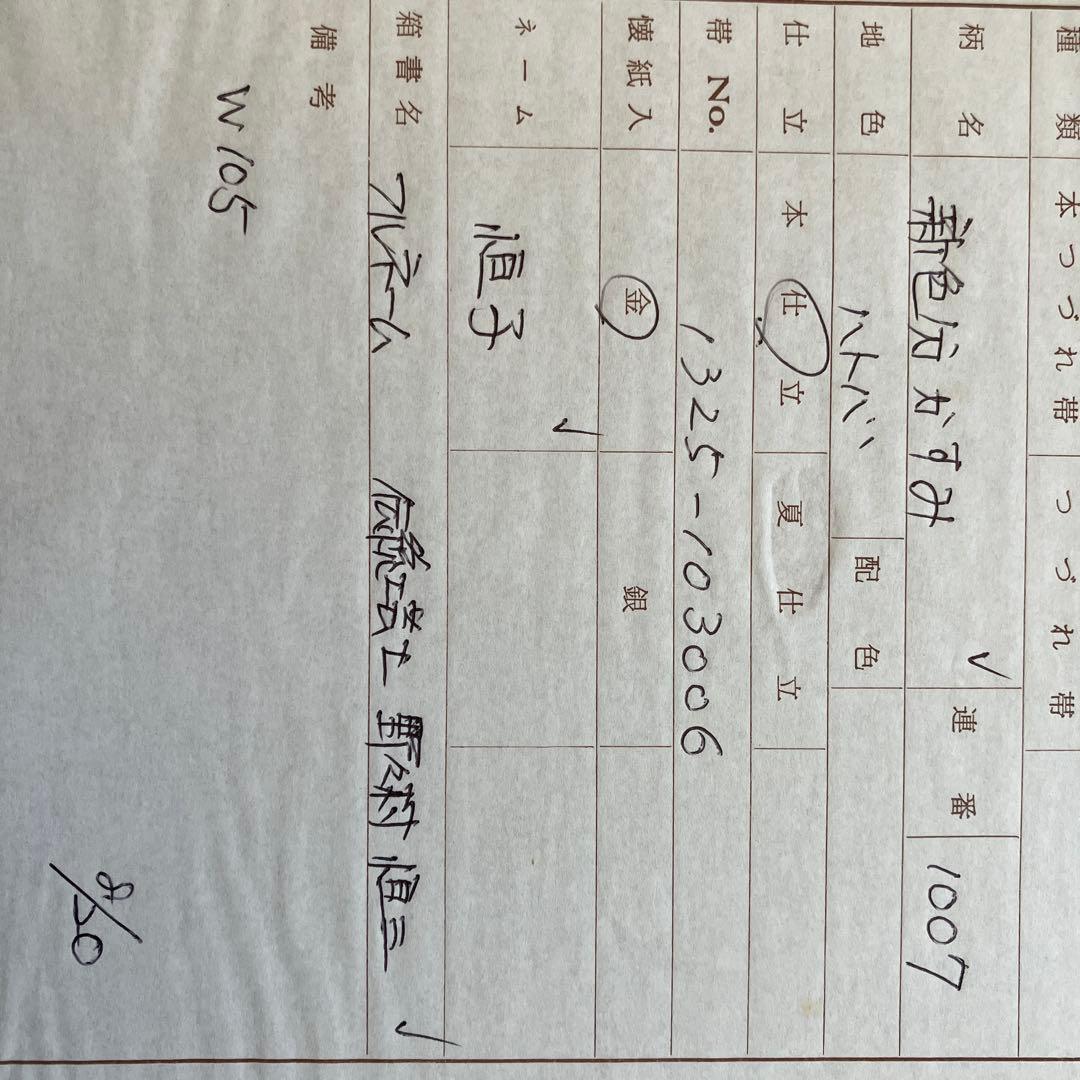 種類 本つづれ帯 つづれ帯
柄名 新色沿かすみ ✓ 連番 1007
地色 ハトバ 配色
仕立 本仕立 夏仕立
帯 No. 1325-103006
懐紙入 金 銀
ネーム 恒子 ✓
箱書名 フルネーム 伝統工芸士 野々村 恒三 ✓
備考
W105
8/30